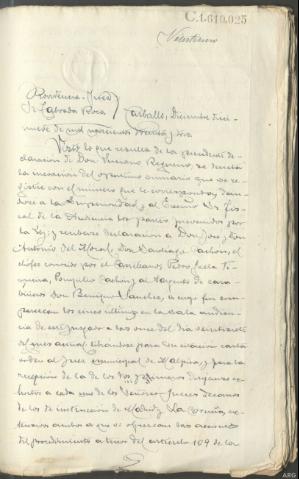 C.1.610.025
Providencia - Juez
Sr Labrada Roca
Carballo, Diciembre diez
y nueve de mil novecientos treinta y
Visto lo que resulta de la precedente de-
claración de Don Luciano Regueiro, se decreta
la incoación del oportuno sumario que se re-
gistre con el número que le corresponda, dan-
dose a la Superioridad y al Excmo Sr. Fis-
cal de la Audiencia los partes prevenidos por
la Ley; y recíbase declaración a Don José, Don
Antonio del Moral, Don Santiago, el
chofer conocido por el Pedro
y al Sargento de cara-
bineros Don Benigno Sanchez, a cuyo fin com-
parezcan los cinco últimos en la Sala audien-
cia de este Juzgado a las once del día veintisiete
del mes actual, librandose para su citación carta
orden al Juez municipal de Malpica; y para la
recepción de la de los dos primeros diríjanse ex-
hortos a cada uno de los Señores Jueces Decanos
de los de instrucción de Madrid y La Coruña, ex-
tensivos ambos a que se ofrezcan las acciones
del procedimiento a tenor del artículo 109 de la
ARG